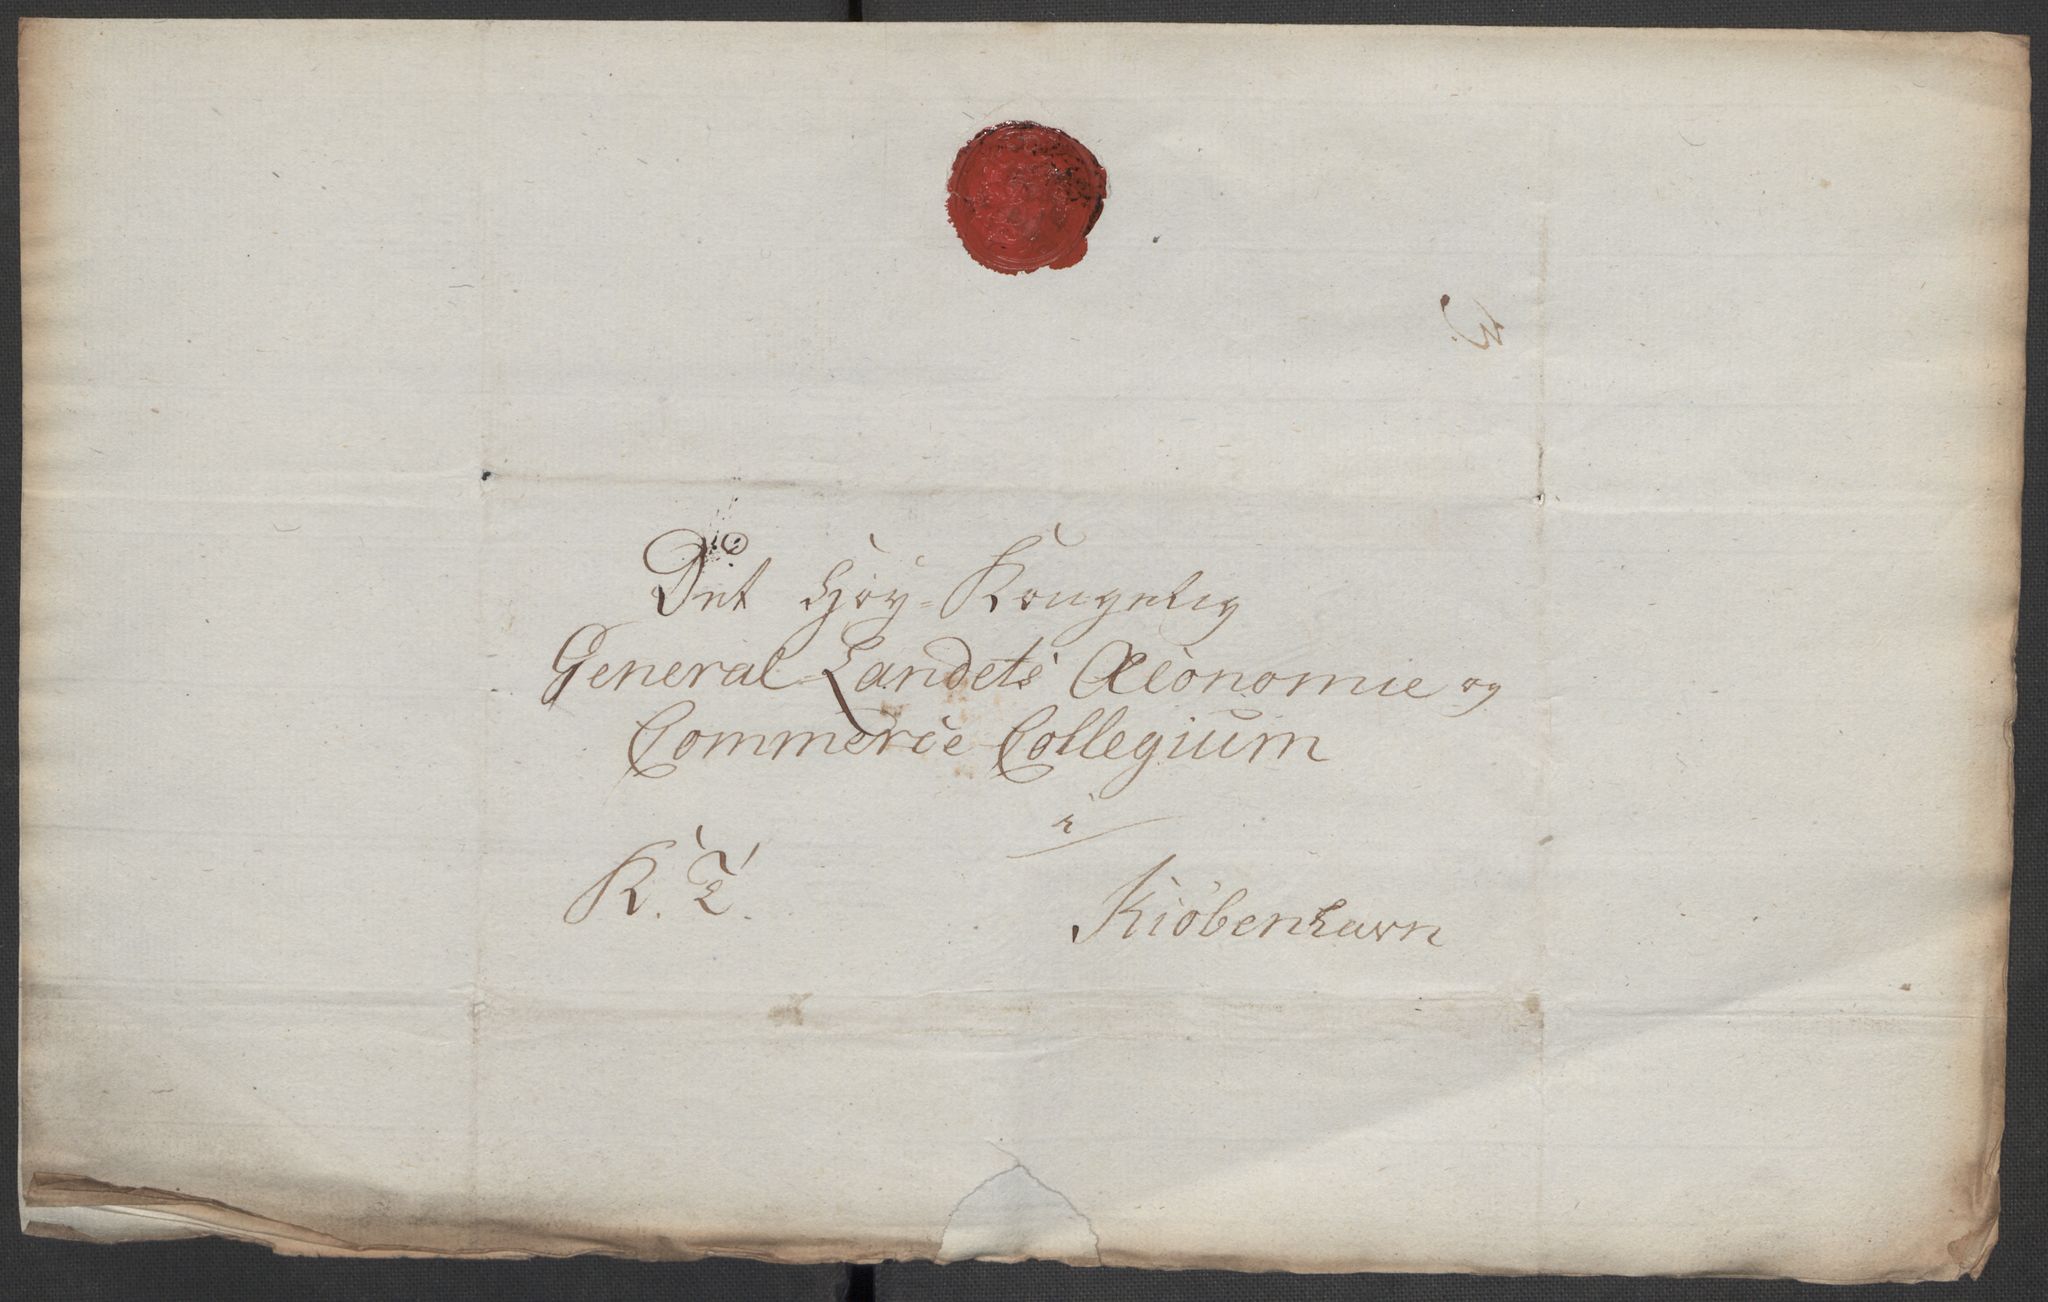 Det Høy-Kongelig
General Landets Œconomie og
Commerce Collegium
i
K. T.
Kiöbenhavn